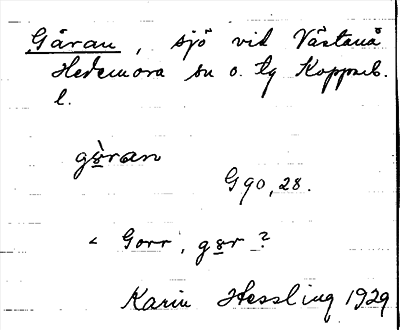 Gåran, sjö vid Västanå
Hedemora sn o. tg Koppab.
l.
gòran
G 90, 28.
< Gorr, gor ?
Karin Hessling 1929